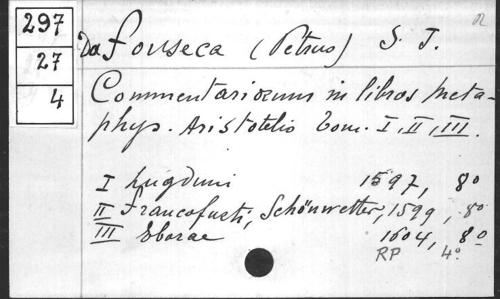 297
27
4
Da Fonseca (Petrus) S. J.
Commentariorum in libros meta-
phys. Aristotelis Tom. I, II, III.
I Lugduni 1597, 8°
II Francofurti, Schönwetter, 1599, 8°
III Eborae 1604, 8°
RP 4°